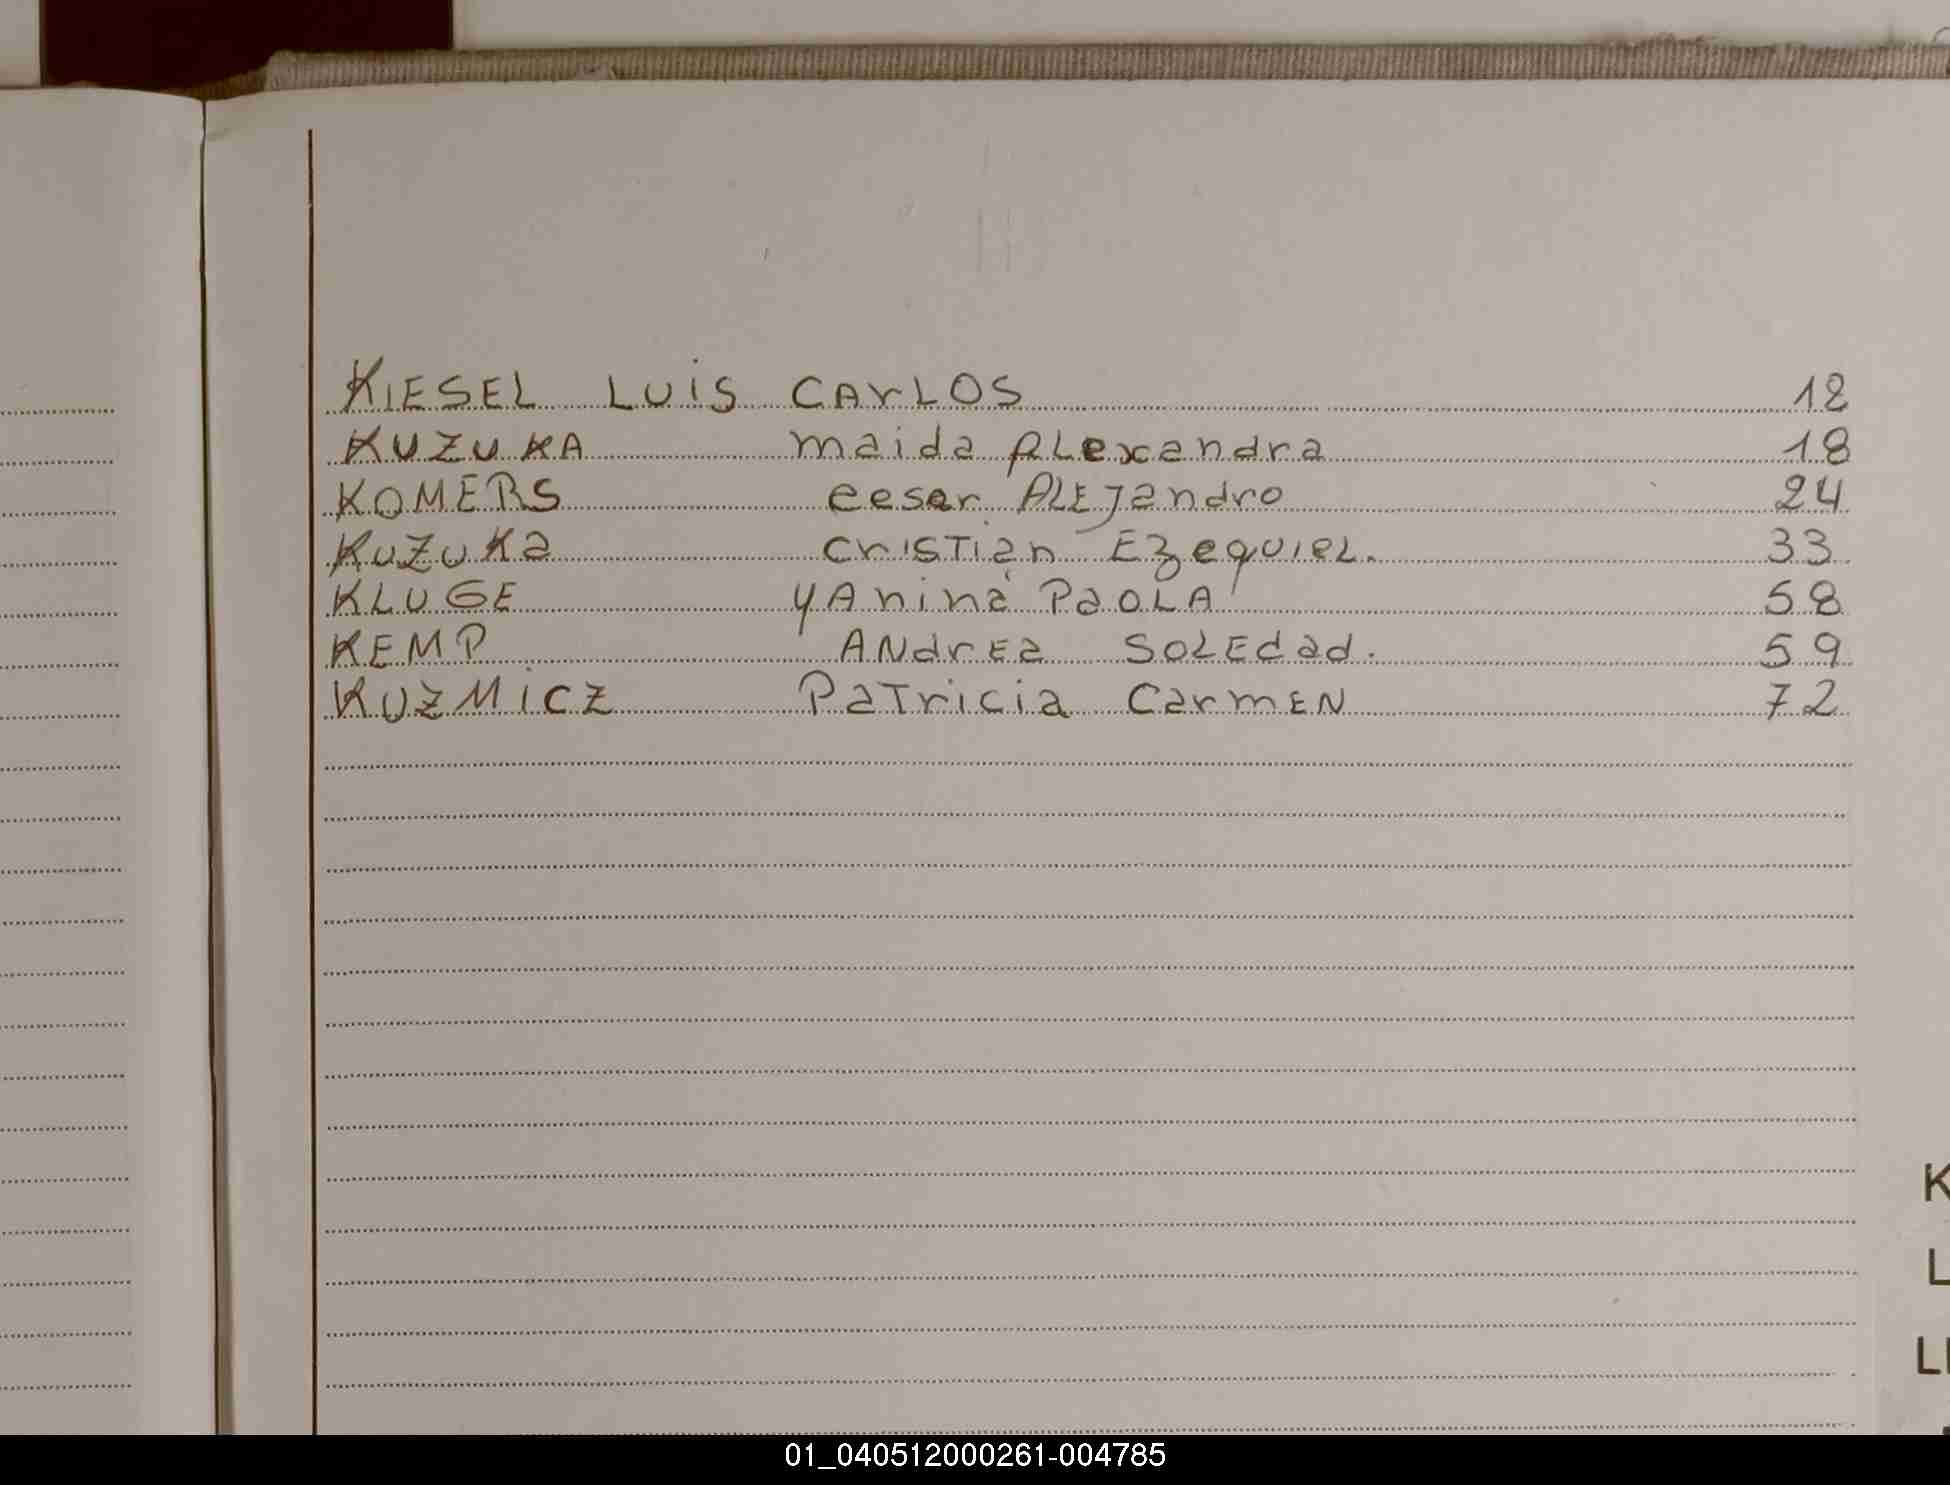 KIESEL LUIS CARLOS 18
KUZUKA maida ALexandra 18
KOMERS cesar ALEJandro 24
KUZUKa CrISTian EzequieL. 33
KLUGE YAnina PaOLA 58
KEMP ANdrEa SOLEdad. 59
KUZMiCZ PaTricia CarmEN 72
K
L
01_040512000261-004785